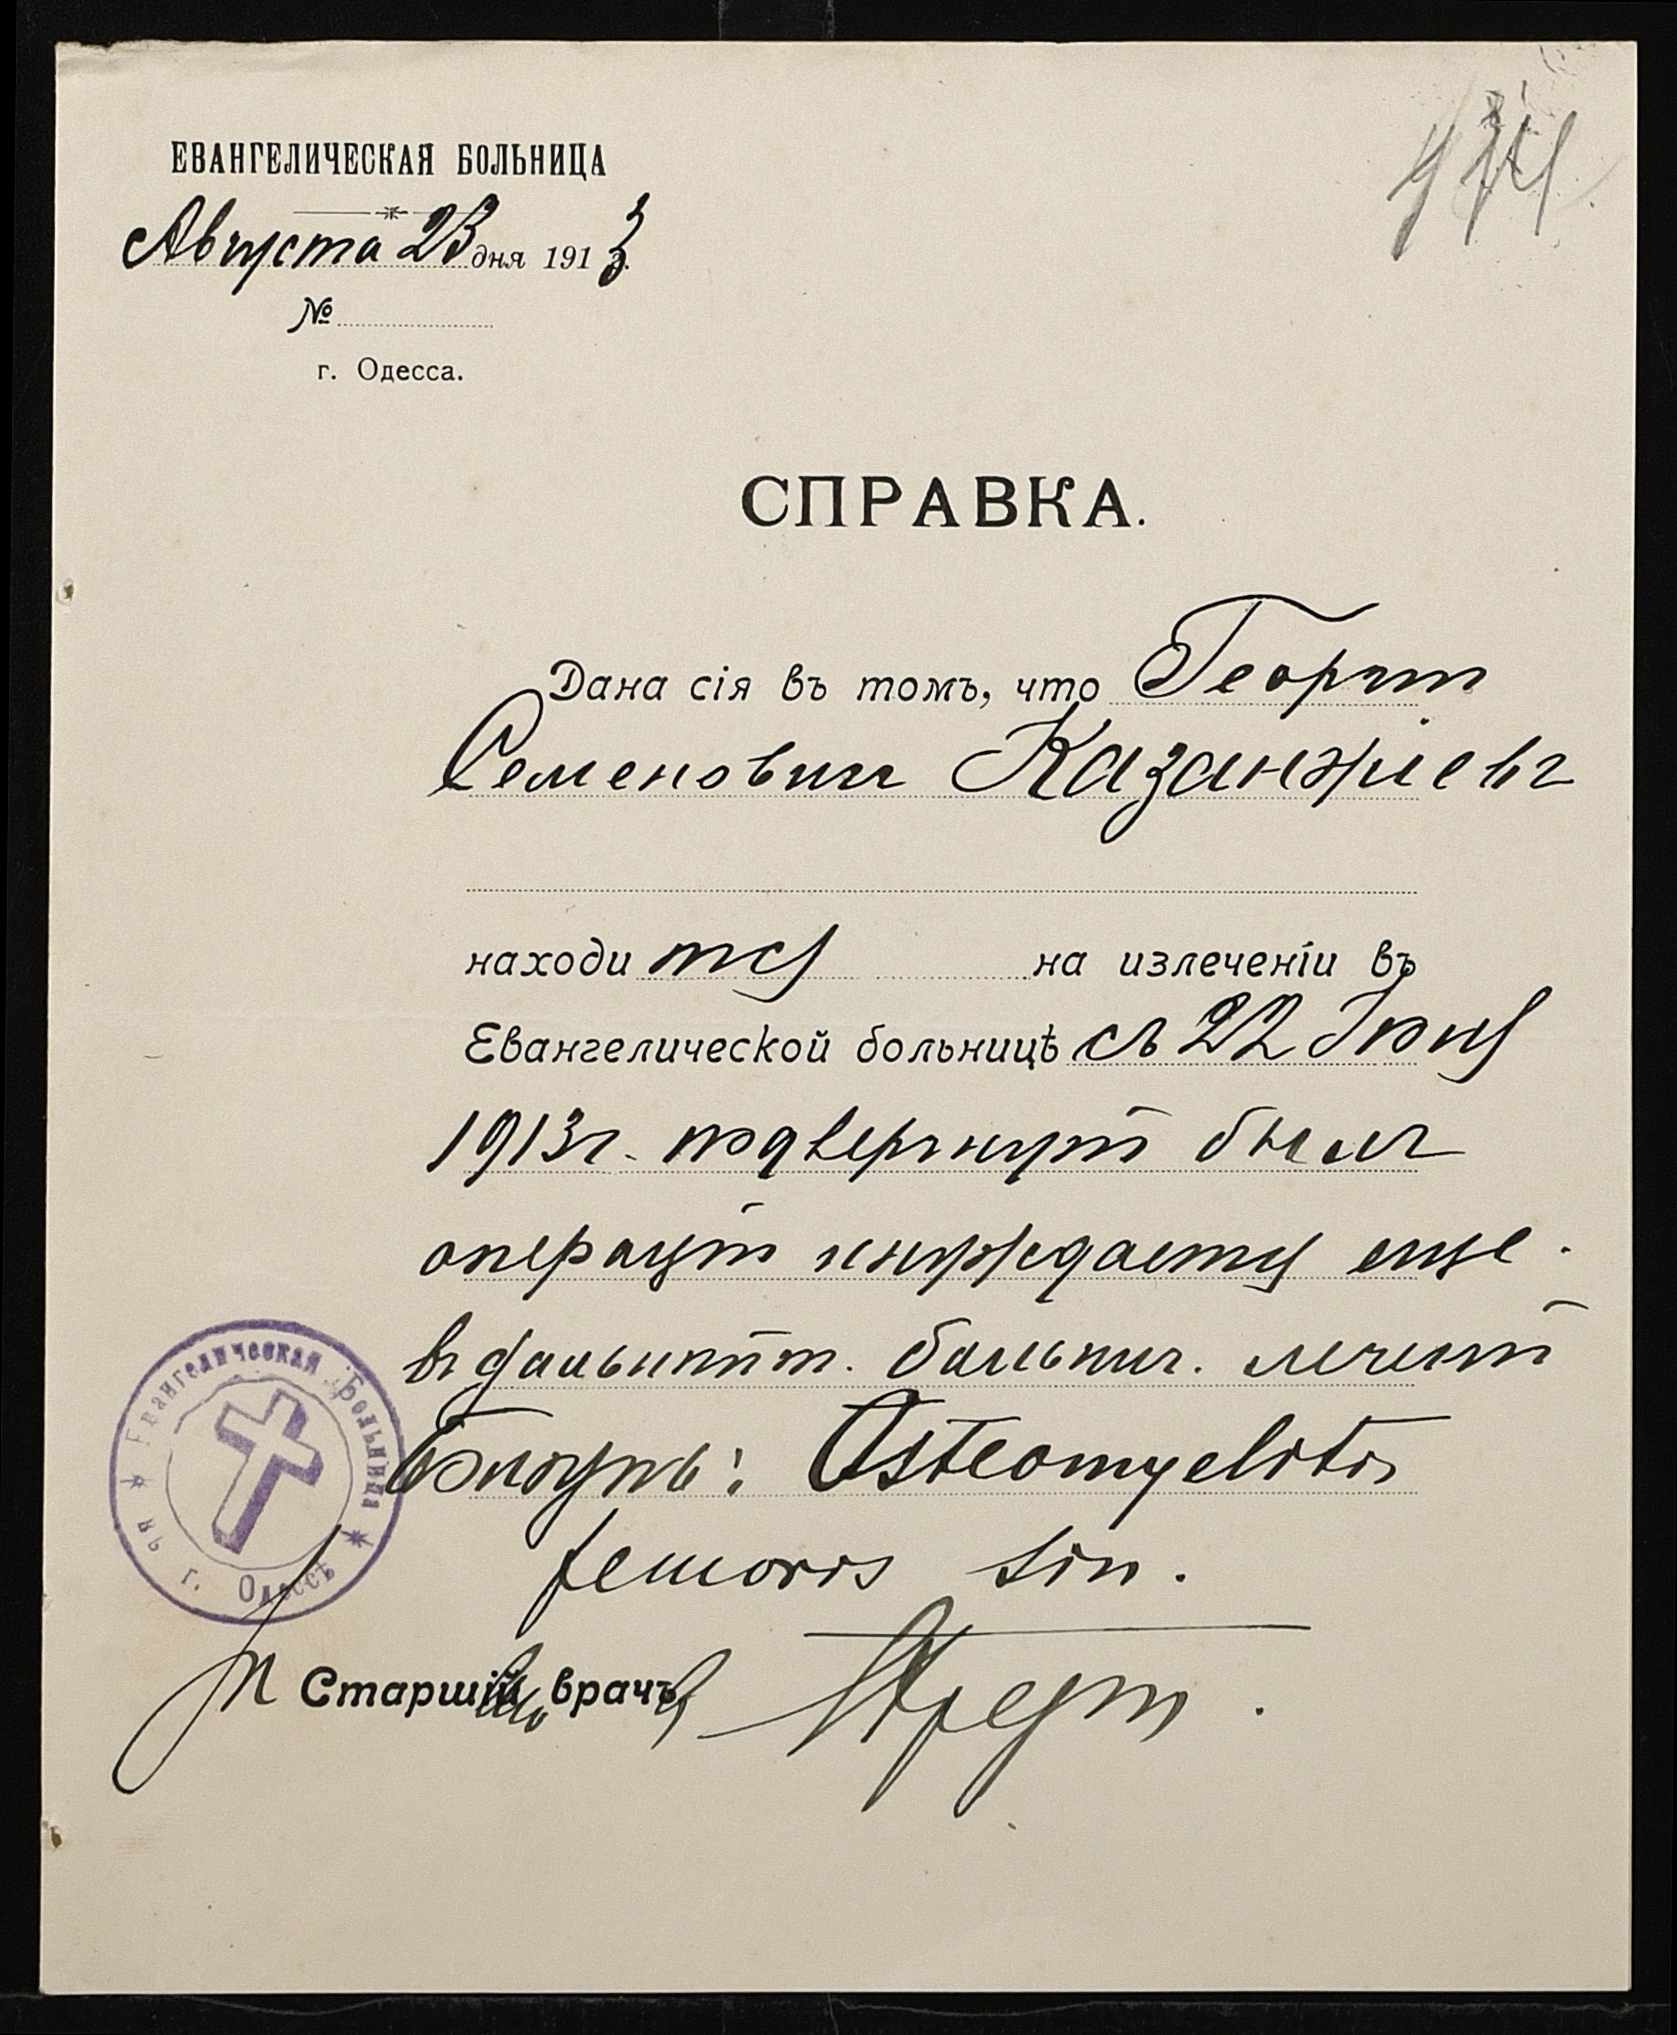 ЕВАНГЕЛИЧЕСКАЯ БОЛЬНИЦА
Августа 23 дня 1913 г.
№
г. Одесса.
СПРАВКА.
Дана сія въ томъ, что Георгій
Семеновичъ Казанжіевъ
находится на излеченіи въ
Евангелической больницѣ съ 22 Іюня
1913 г. подвергнутъ былъ
операціи и нуждается еще
въ дальнѣйш. больнич. леченіи
Болѣзнь: Osteomyelitis
femoris sin.
Старшій врачъ
Евангелическая Больница
въ г. Одессѣ